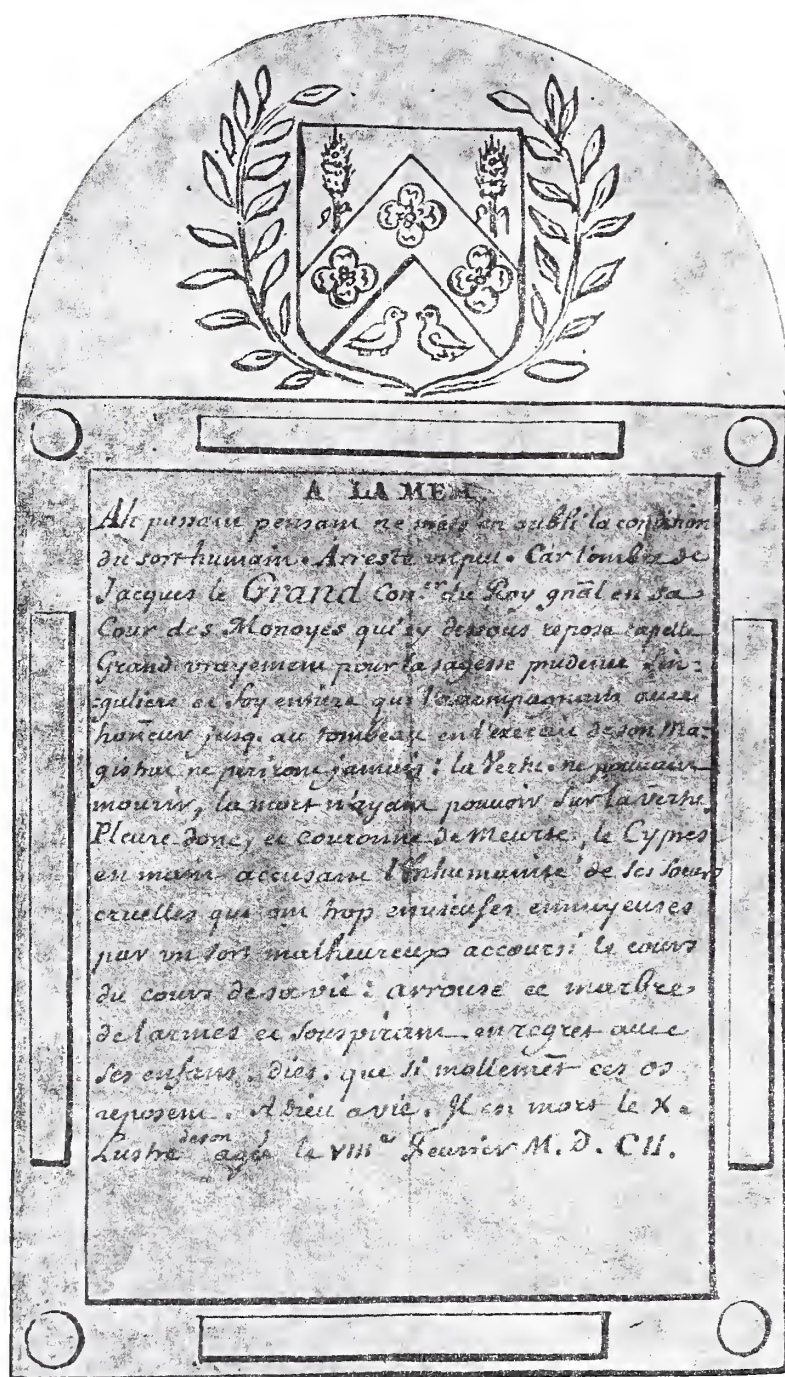 A LA MEM.
Ah passant pensant ne mets en oubli la condition
du sort humain. Arreste un peu. Car l'ombre de
Jacques le Grand Con.er du Roy gñal en sa
Cour des Monoyes qui cy dessous repose tapelle
Grand vrayement pour la sagesse prudence Sin:
:guliere et foy entiere qui l'accompagnants avec
honneur jusq. au tombeau en l'exercice de son Ma:
gistrat ne periront jamais: la Vertu ne pouvant
mourir, la mort n'ayant pouvoir Sur la vertu.
Pleure donc, et couronné de meurte, le Cypres
en main accusant l'Inhumanité de ses soeurs
cruelles qui ont trop envieuses ennuyeuses
par un sort malheureux accourci le cours
du cours de sa vie: arrouse ce marbre
de larmes et souspirant en regret avec
ses enfans. dies. que si mollemēt ces os
reposent. A Dieu avie. Il est mort le X.
Lustre de son agé le VIIIe Feurier M. D. CII.